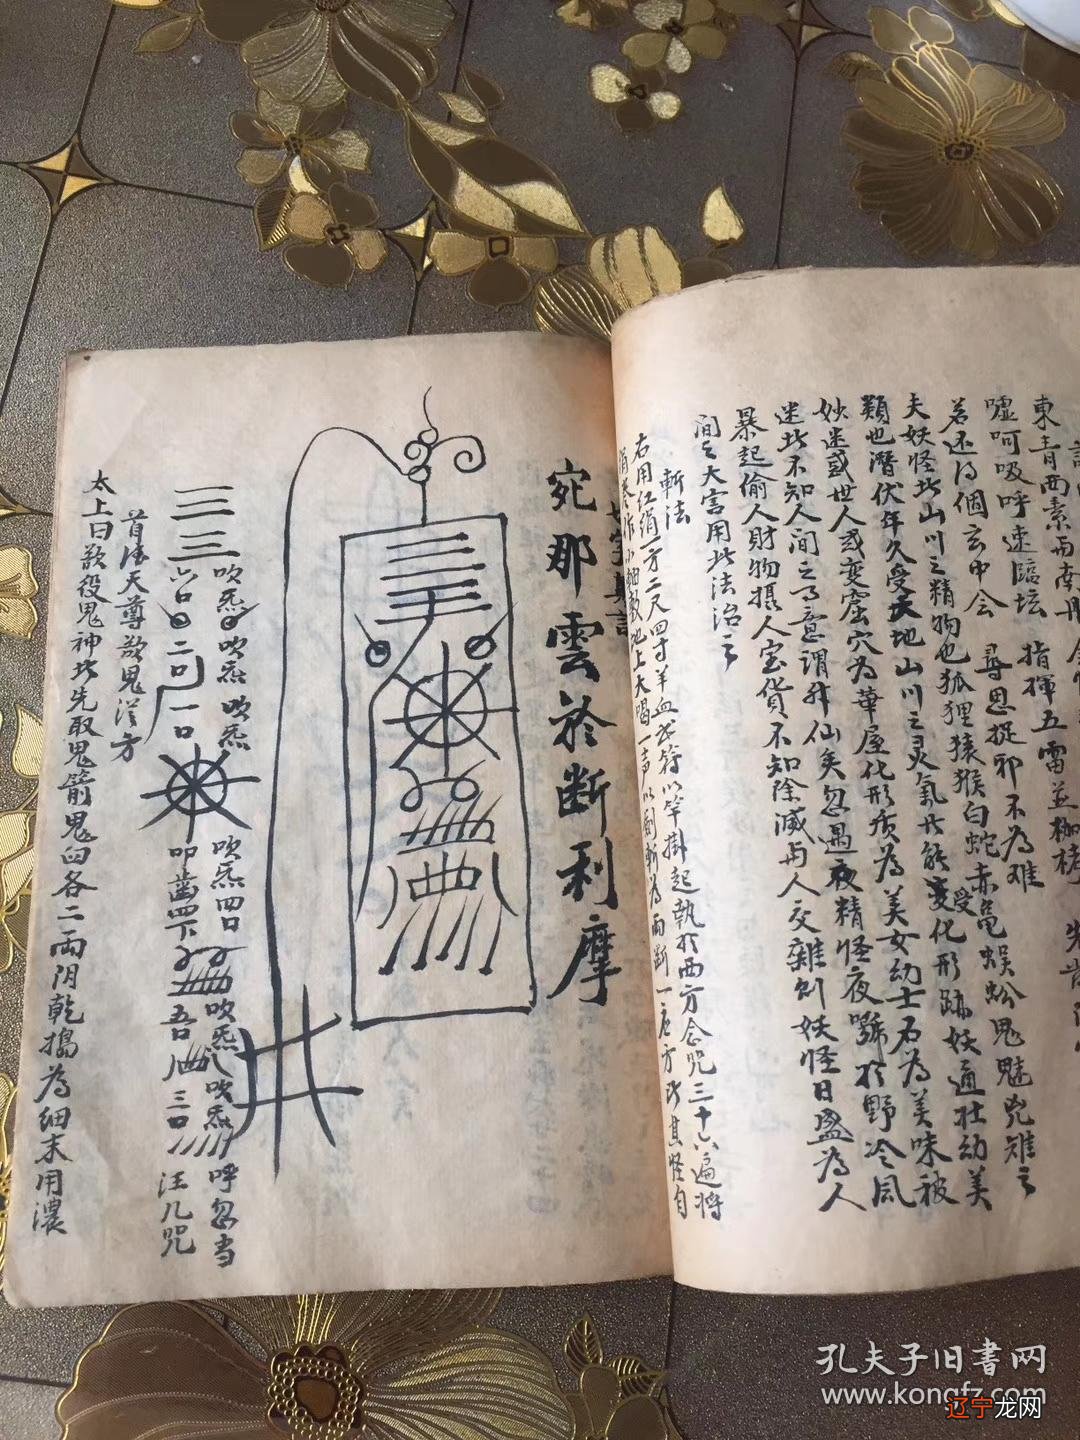 東青西素而南丹
嘘呵吸呼速臨坛 指揮五雷並枷栲
若还得個玄中会 尋思捉邪不為难
夫妖怪此山川之精物也狐狸猿猴白蛇赤黾蜈蚣鬼魅兇雉之
類也潜伏年久受天地山川之灵氣此能变化形跡妖通壮幼美
妙迷惑世人或变窟穴為華屋化形质為美女幼士石為美味被
迷此不知人间之事意謂升仙矣忽遇夜精怪夜號於野冷風
暴起偷人財物摄人宝货不知除滅与人交雜則妖怪日盛為人
间之大害用此法治之
斬法
右用红绢一方二尺四寸羊血书符以竿掛起執於西方念咒三十六遍将
地上大喝一声以劍斬為两断一应方此其怪自
宛那雲於斷利摩
吹炁 吹炁 吹炁 吹炁四口 吹炁 吹炁 呼忽当
三三 六口 二口 一口 叩齒四下 吾 三口 汪几咒
首法天尊欬鬼淫方
太上曰欬役鬼神此先取鬼箭鬼臼各二両阴乾搗為细末用濃
孔夫子旧書网
www.kongfz.com
辽宁龙网